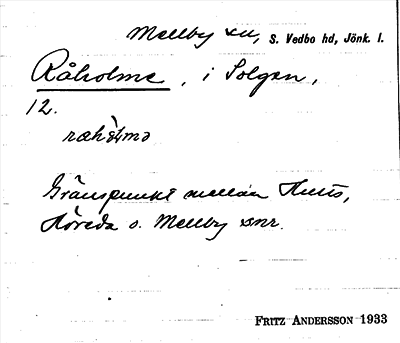 Mellby sn, S. Vedbo hd, Jönk. l.
Råholme, i Solgen,
12.
ræhòlmə
Gränspunkt mellan Hults,
Höreda o. Mellby snr.
FRITZ ANDERSSON 1933